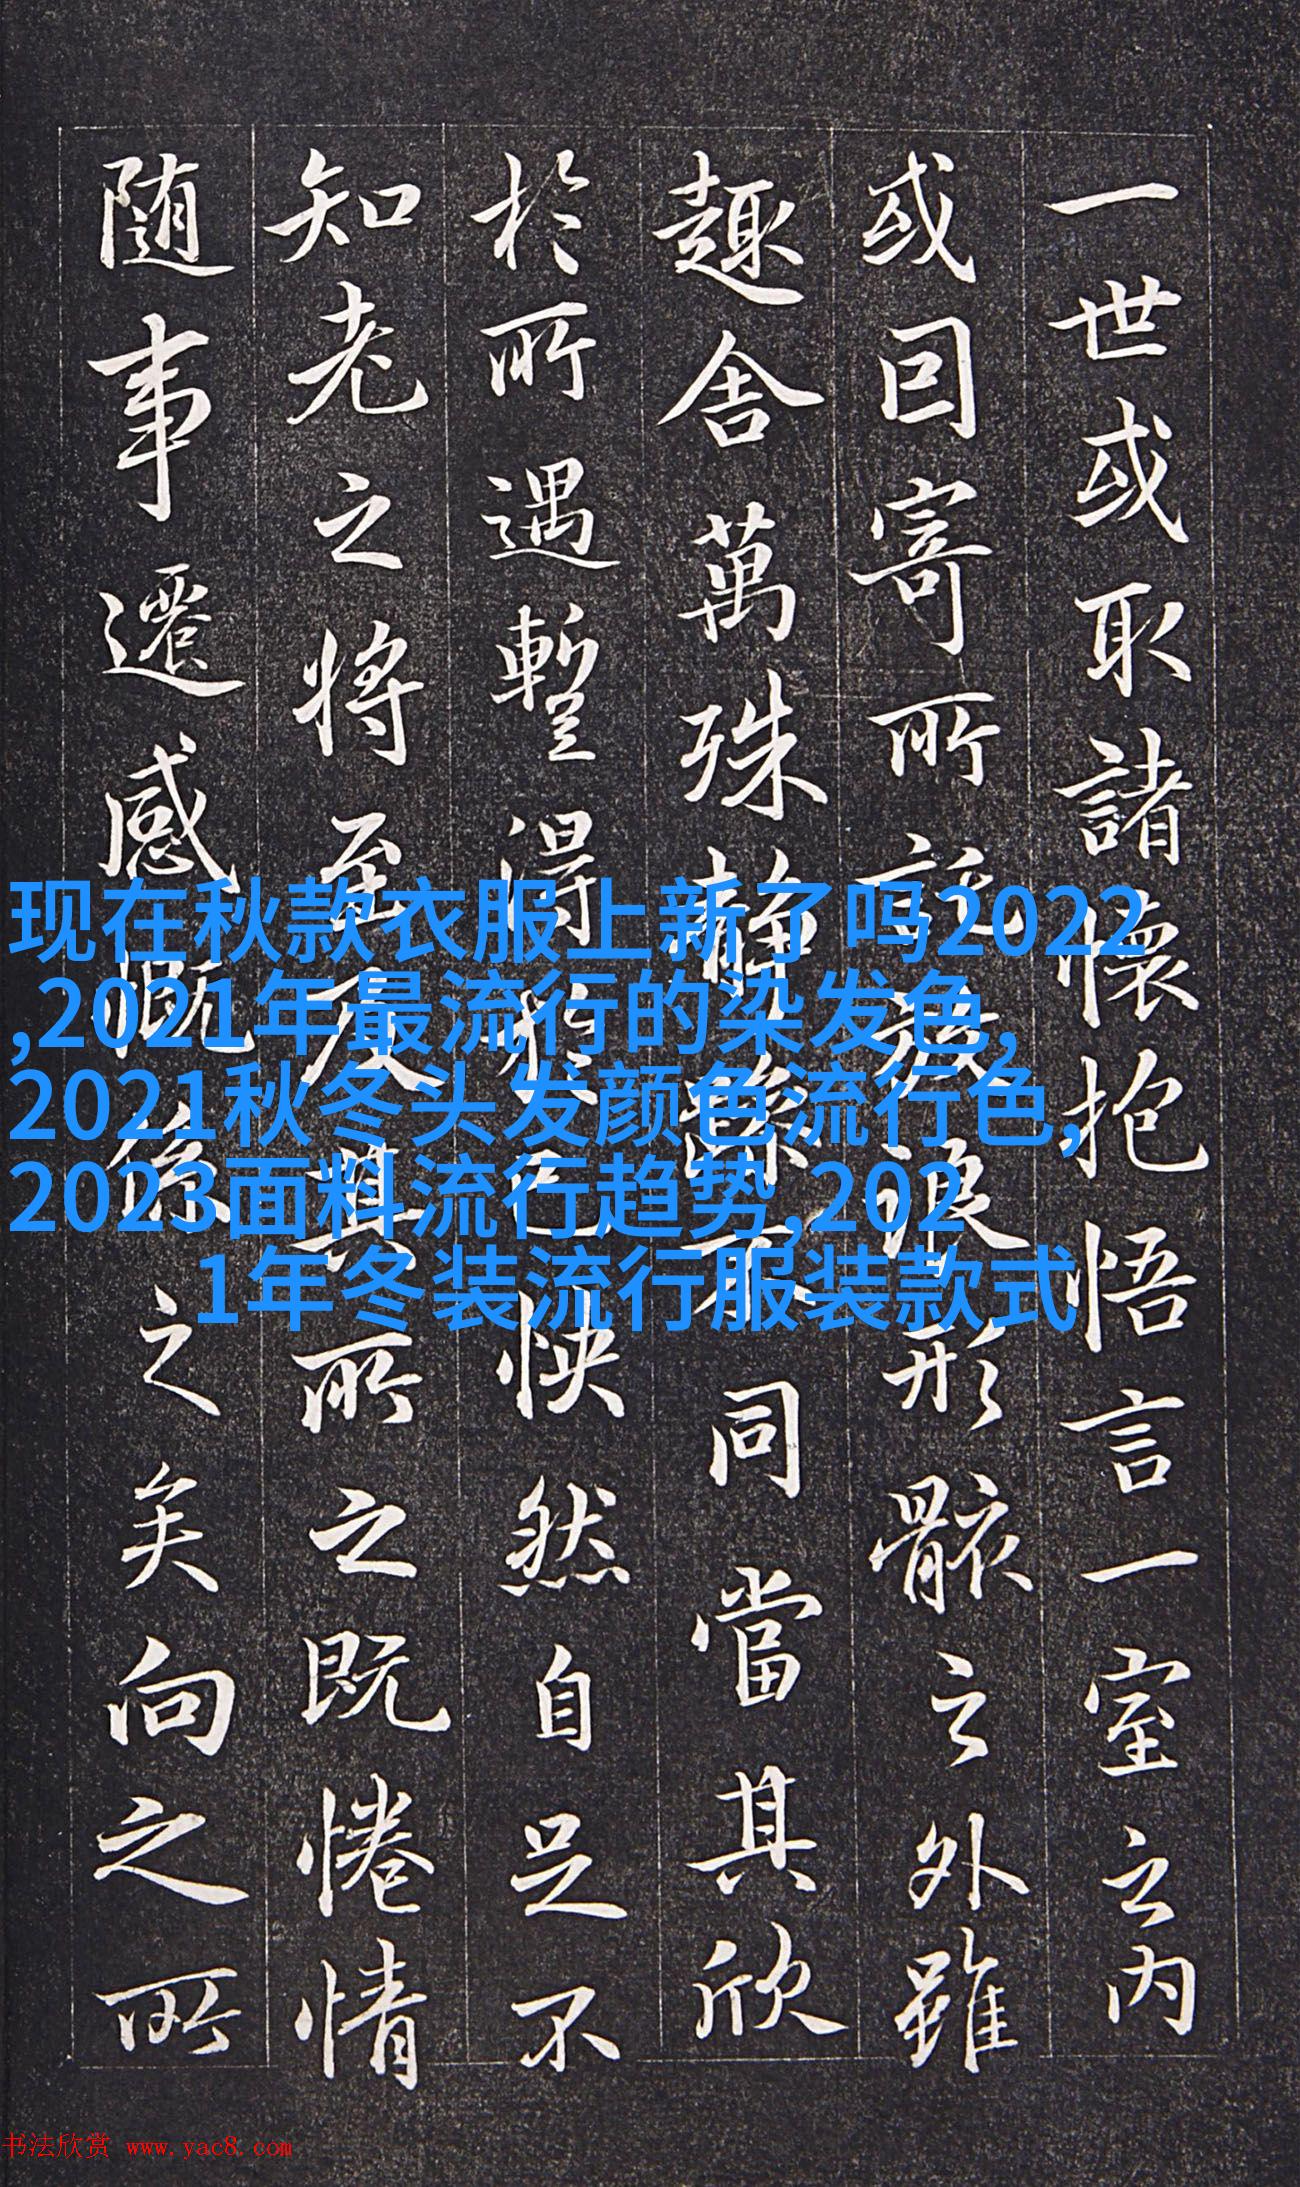 一世或取諸懷抱悟言一室之内
或因寄所託放浪形骸之外雖
趣舍萬殊静躁不同當其欣
於所遇暫得於己快然自足不
知老之将至及其所之既惓情
随事遷感慨係之矣向之所
现在秋款衣服上新了吗2022
,2021年最流行的染发色,
2021秋冬头发颜色流行色,
2023面料流行趋势,202
1年冬装流行服装款式
书法欣赏 www.yac8.com